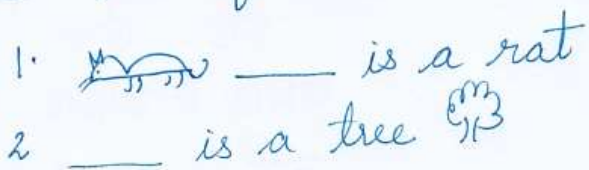 1. ____ is a rat
2 ____ is a tree